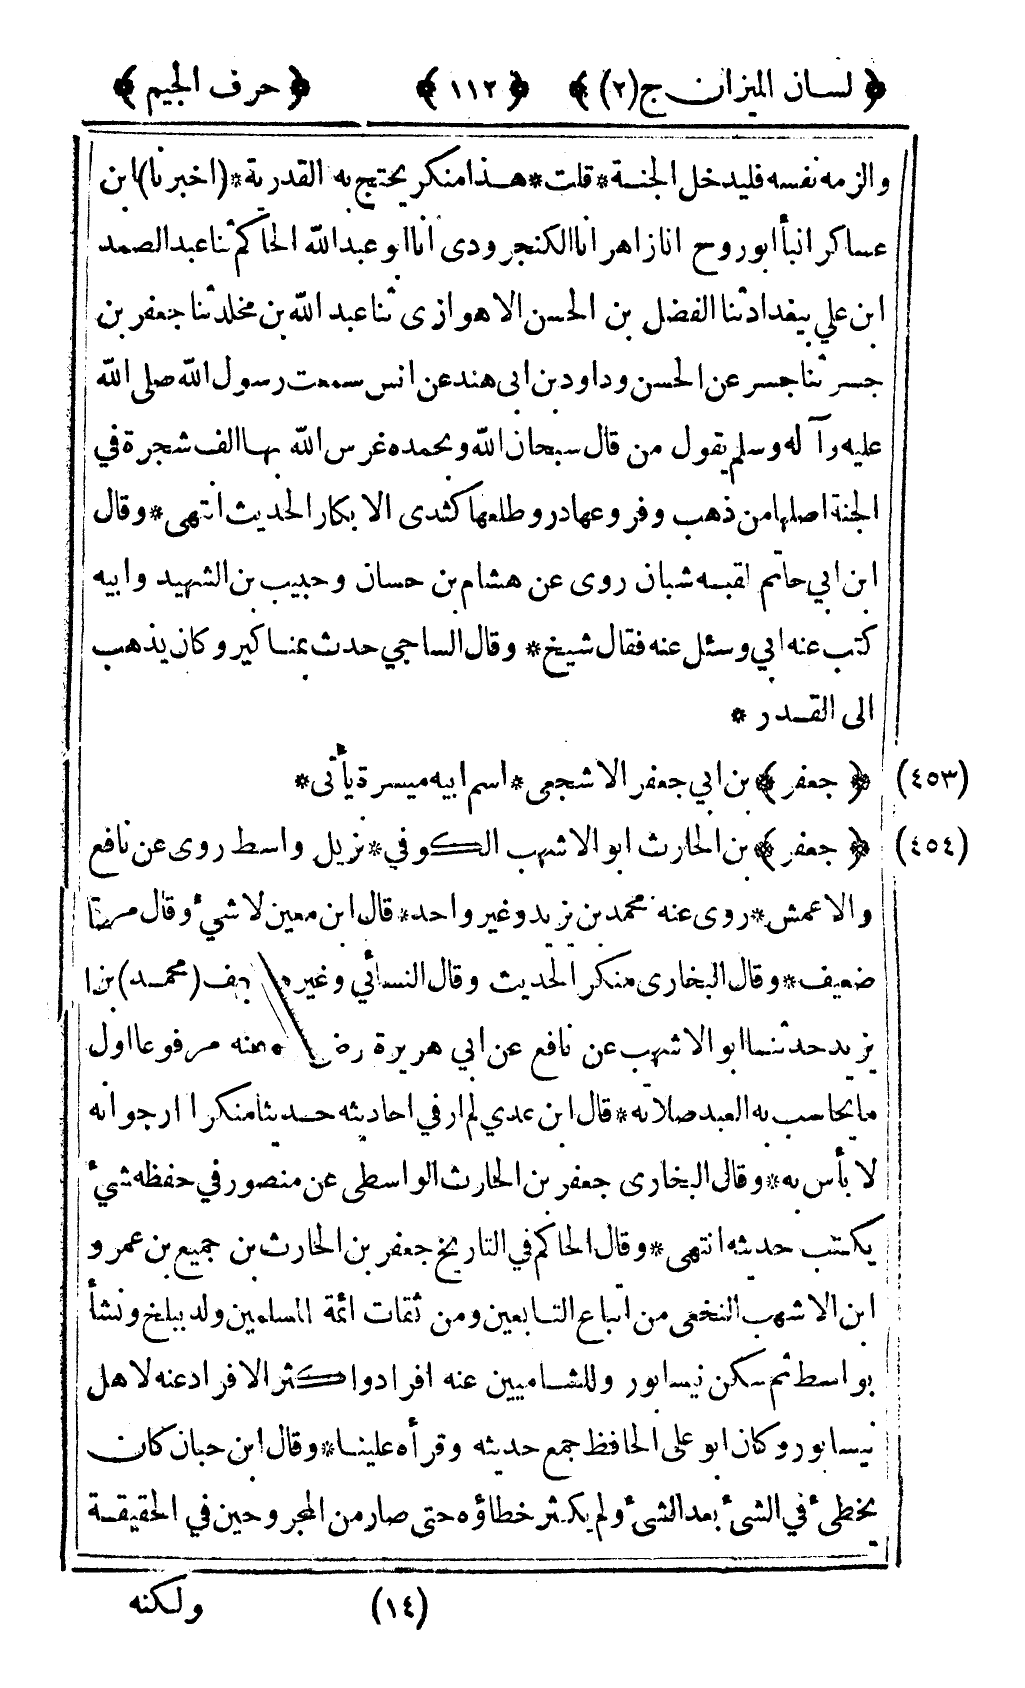 ﴿ لسان الميزان ج(٢) ﴾ ﴿ ١١٢ ﴾ ﴿ حرف الجيم ﴾
والزمه نفسه فليدخل الجنة * قلت * هذا منكر يحتج به القدرية * (اخبرنا) ابن
عساكر انبأ ابو روح انا زاهر انا الكنجرودى انا ابو عبد الله الحاكم ثنا عبد الصمد
ابن علي ببغداد ثنا الفضل بن الحسن الاهوازى ثنا عبد الله بن مخلد ثنا جعفر بن
جسر ثنا جسر عن الحسن وداود بن ابى هند عن انس سمعت رسول الله صلى الله
عليه وآله وسلم يقول من قال سبحان الله وبحمده غرس الله بها الف شجرة في
الجنة اصلها من ذهب وفروعها در وطلعها كثدى الابكار الحديث انتهى * وقال
ابن ابي حاتم لقبه شبان روى عن هشام بن حسان وحبيب بن الشهيد وابيه
كتب عنه ابي وسئل عنه فقال شيخ * وقال الساجي حدث بمناكير وكان يذهب
الى القدر *
(٤٥٣) ﴿ جعفر ﴾ بن ابي جعفر الاشجعى * اسم ابيه ميسرة يأتى *
(٤٥٤) ﴿ جعفر ﴾ بن الحارث ابو الاشهب الكوفي * نزيل واسط روى عن نافع
والاعمش * روى عنه محمد بن يزيد وغير واحد * قال ابن معين لا شيء وقال مرة
ضعيف * وقال البخارى منكر الحديث وقال النسائي وغيره (محمد) بن
يزيد حدثنا ابو الاشهب عن نافع عن ابي هريرة رضى عنه مرفوعا اول
ما يحاسب به العبد صلاته * قال ابن عدي لم ار في احاديثه حديثا منكرا ارجو انه
لا بأس به * وقال البخارى جعفر بن الحارث الواسطى عن منصور في حفظه شيء
يكتب حديثه انتهى * وقال الحاكم في التاريخ جعفر بن الحارث بن جميع بن عمرو
ابن الاشهب النخعى من اتباع التابعين ومن ثقات ائمة المسلمين ولد ببلخ ونشأ
بواسط ثم سكن نيسابور وللشاميين عنه افراد واكثر الافراد عنه لاهل
نيسابور وكان ابو على الحافظ جمع حديثه وقرأه علينا * وقال ابن حبان كان
يخطىء في الشىء بعد الشىء ولم يكثر خطاؤه حتى صار من المجروحين في الحقيقة
(١٤) ولكنه